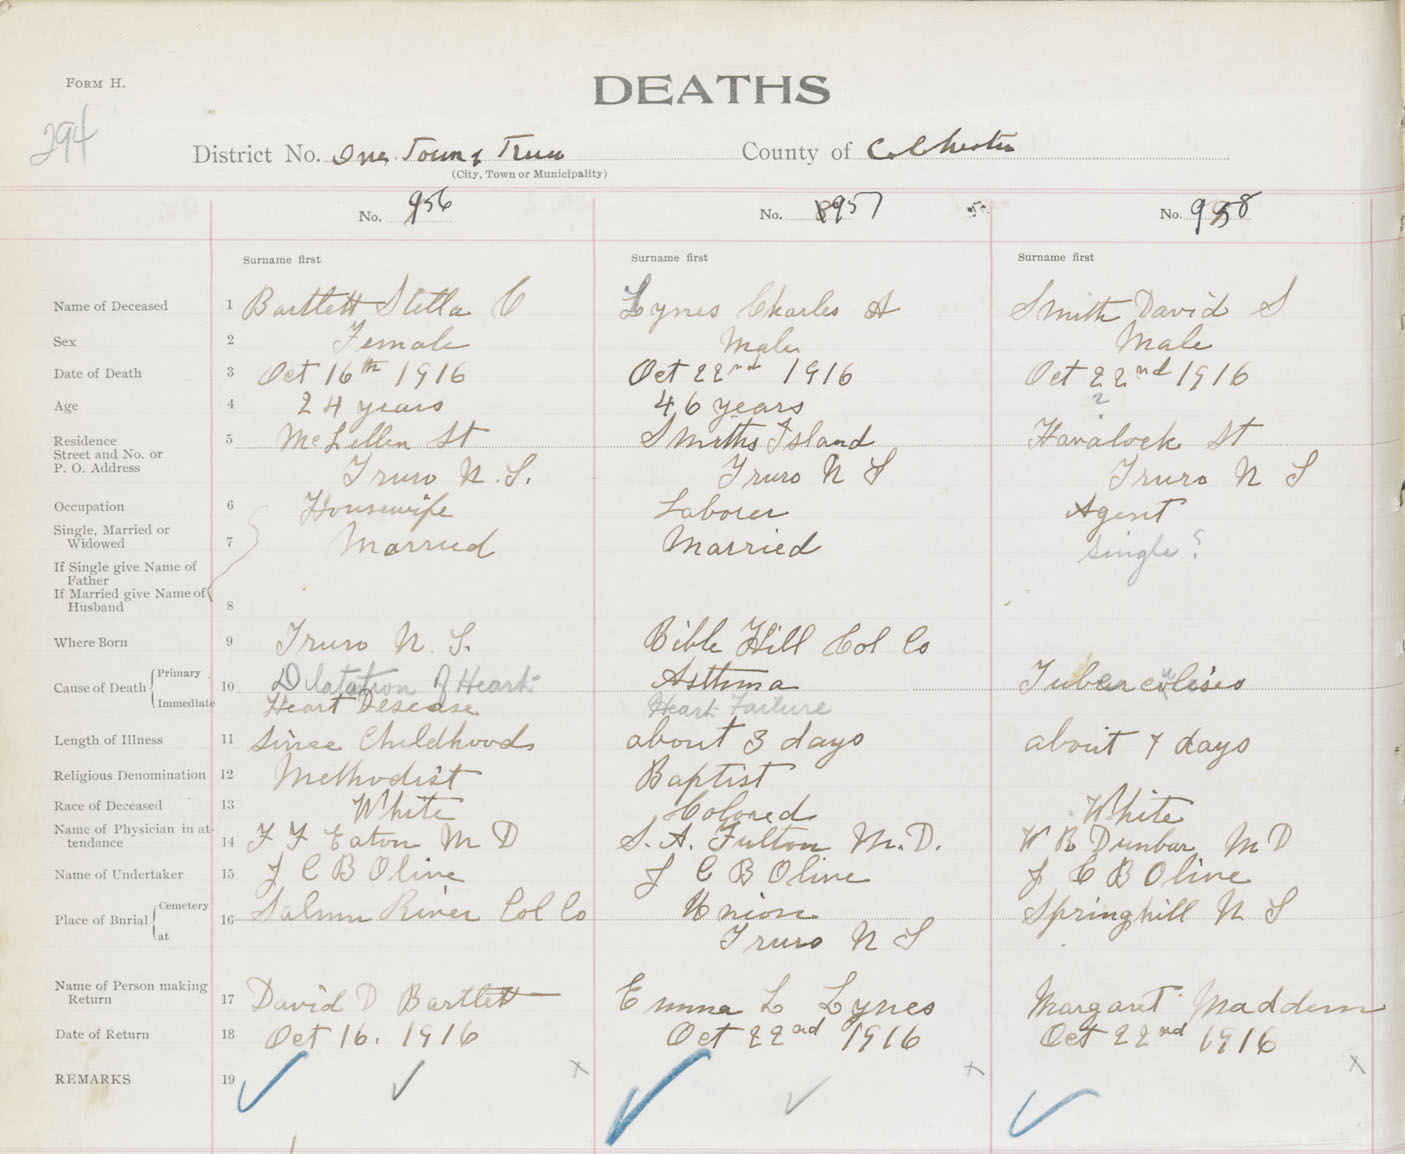 FORM H.
DEATHS
294
District No. One Town of Truro County of Colchester
(City, Town or Municipality)
No. 956 No. 957 No. 958
Surname first Surname first Surname first
Name of Deceased 1 Bartlett Stella C Lynes Charles A Smith David S
Sex 2 Female Male Male
Date of Death 3 Oct 16th 1916 Oct 22nd 1916 Oct 22nd 1916
Age 4 24 years 46 years ?
Residence 5 McLellen St Smiths Island Havalock St
Street and No. or
P. O. Address Truro N.S. Truro N S Truro N S
Occupation 6 Housewife Laborer Agent
Single, Married or
Widowed 7 Married Married Single ?
If Single give Name of
Father
If Married give Name of
Husband 8
Where Born 9 Truro N. S. Bible Hill Col Co
Primary
Cause of Death 10 Dilatation of Heart Asthma Tuberculosis
Immediate Heart Desease Heart Failure
Length of Illness 11 Since Childhood about 3 days about 7 days
Religious Denomination 12 Methodist Baptist
Race of Deceased 13 White Colored White
Name of Physician in at-
tendance 14 F F Eaton M D S. A. Fulton M.D. W R Dunbar M D
Name of Undertaker 15 J C B Olive J C B Olive J C B Olive
Cemetery
Place of Burial 16 Salmon River Col Co Union Springhill N S
at Truro N S
Name of Person making
Return 17 David D Bartlett Emma L Lynes Margaret Maddern
Date of Return 18 Oct 16. 1916 Oct 22nd 1916 Oct 22nd 1916
REMARKS 19